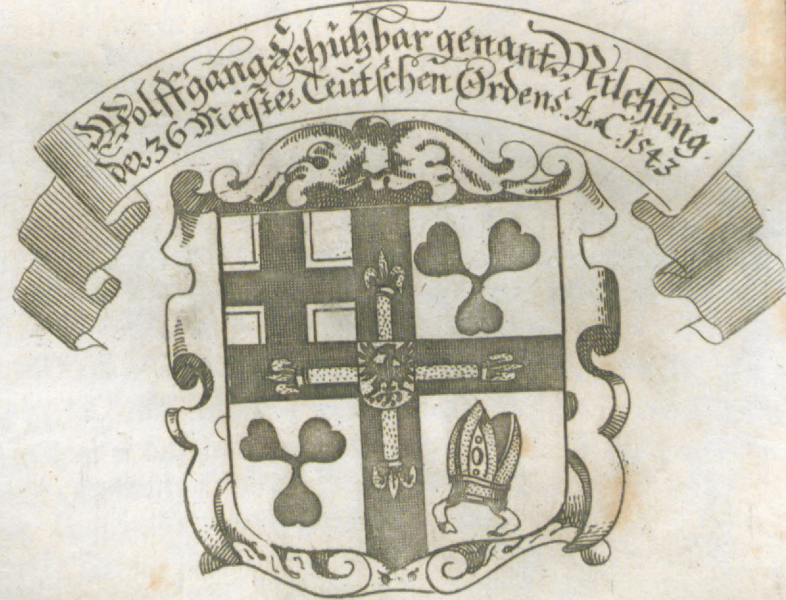 Wolffgang Schutzbar genant Milchling.
der 36 Meister Teutschen Ordens A.C. 1543